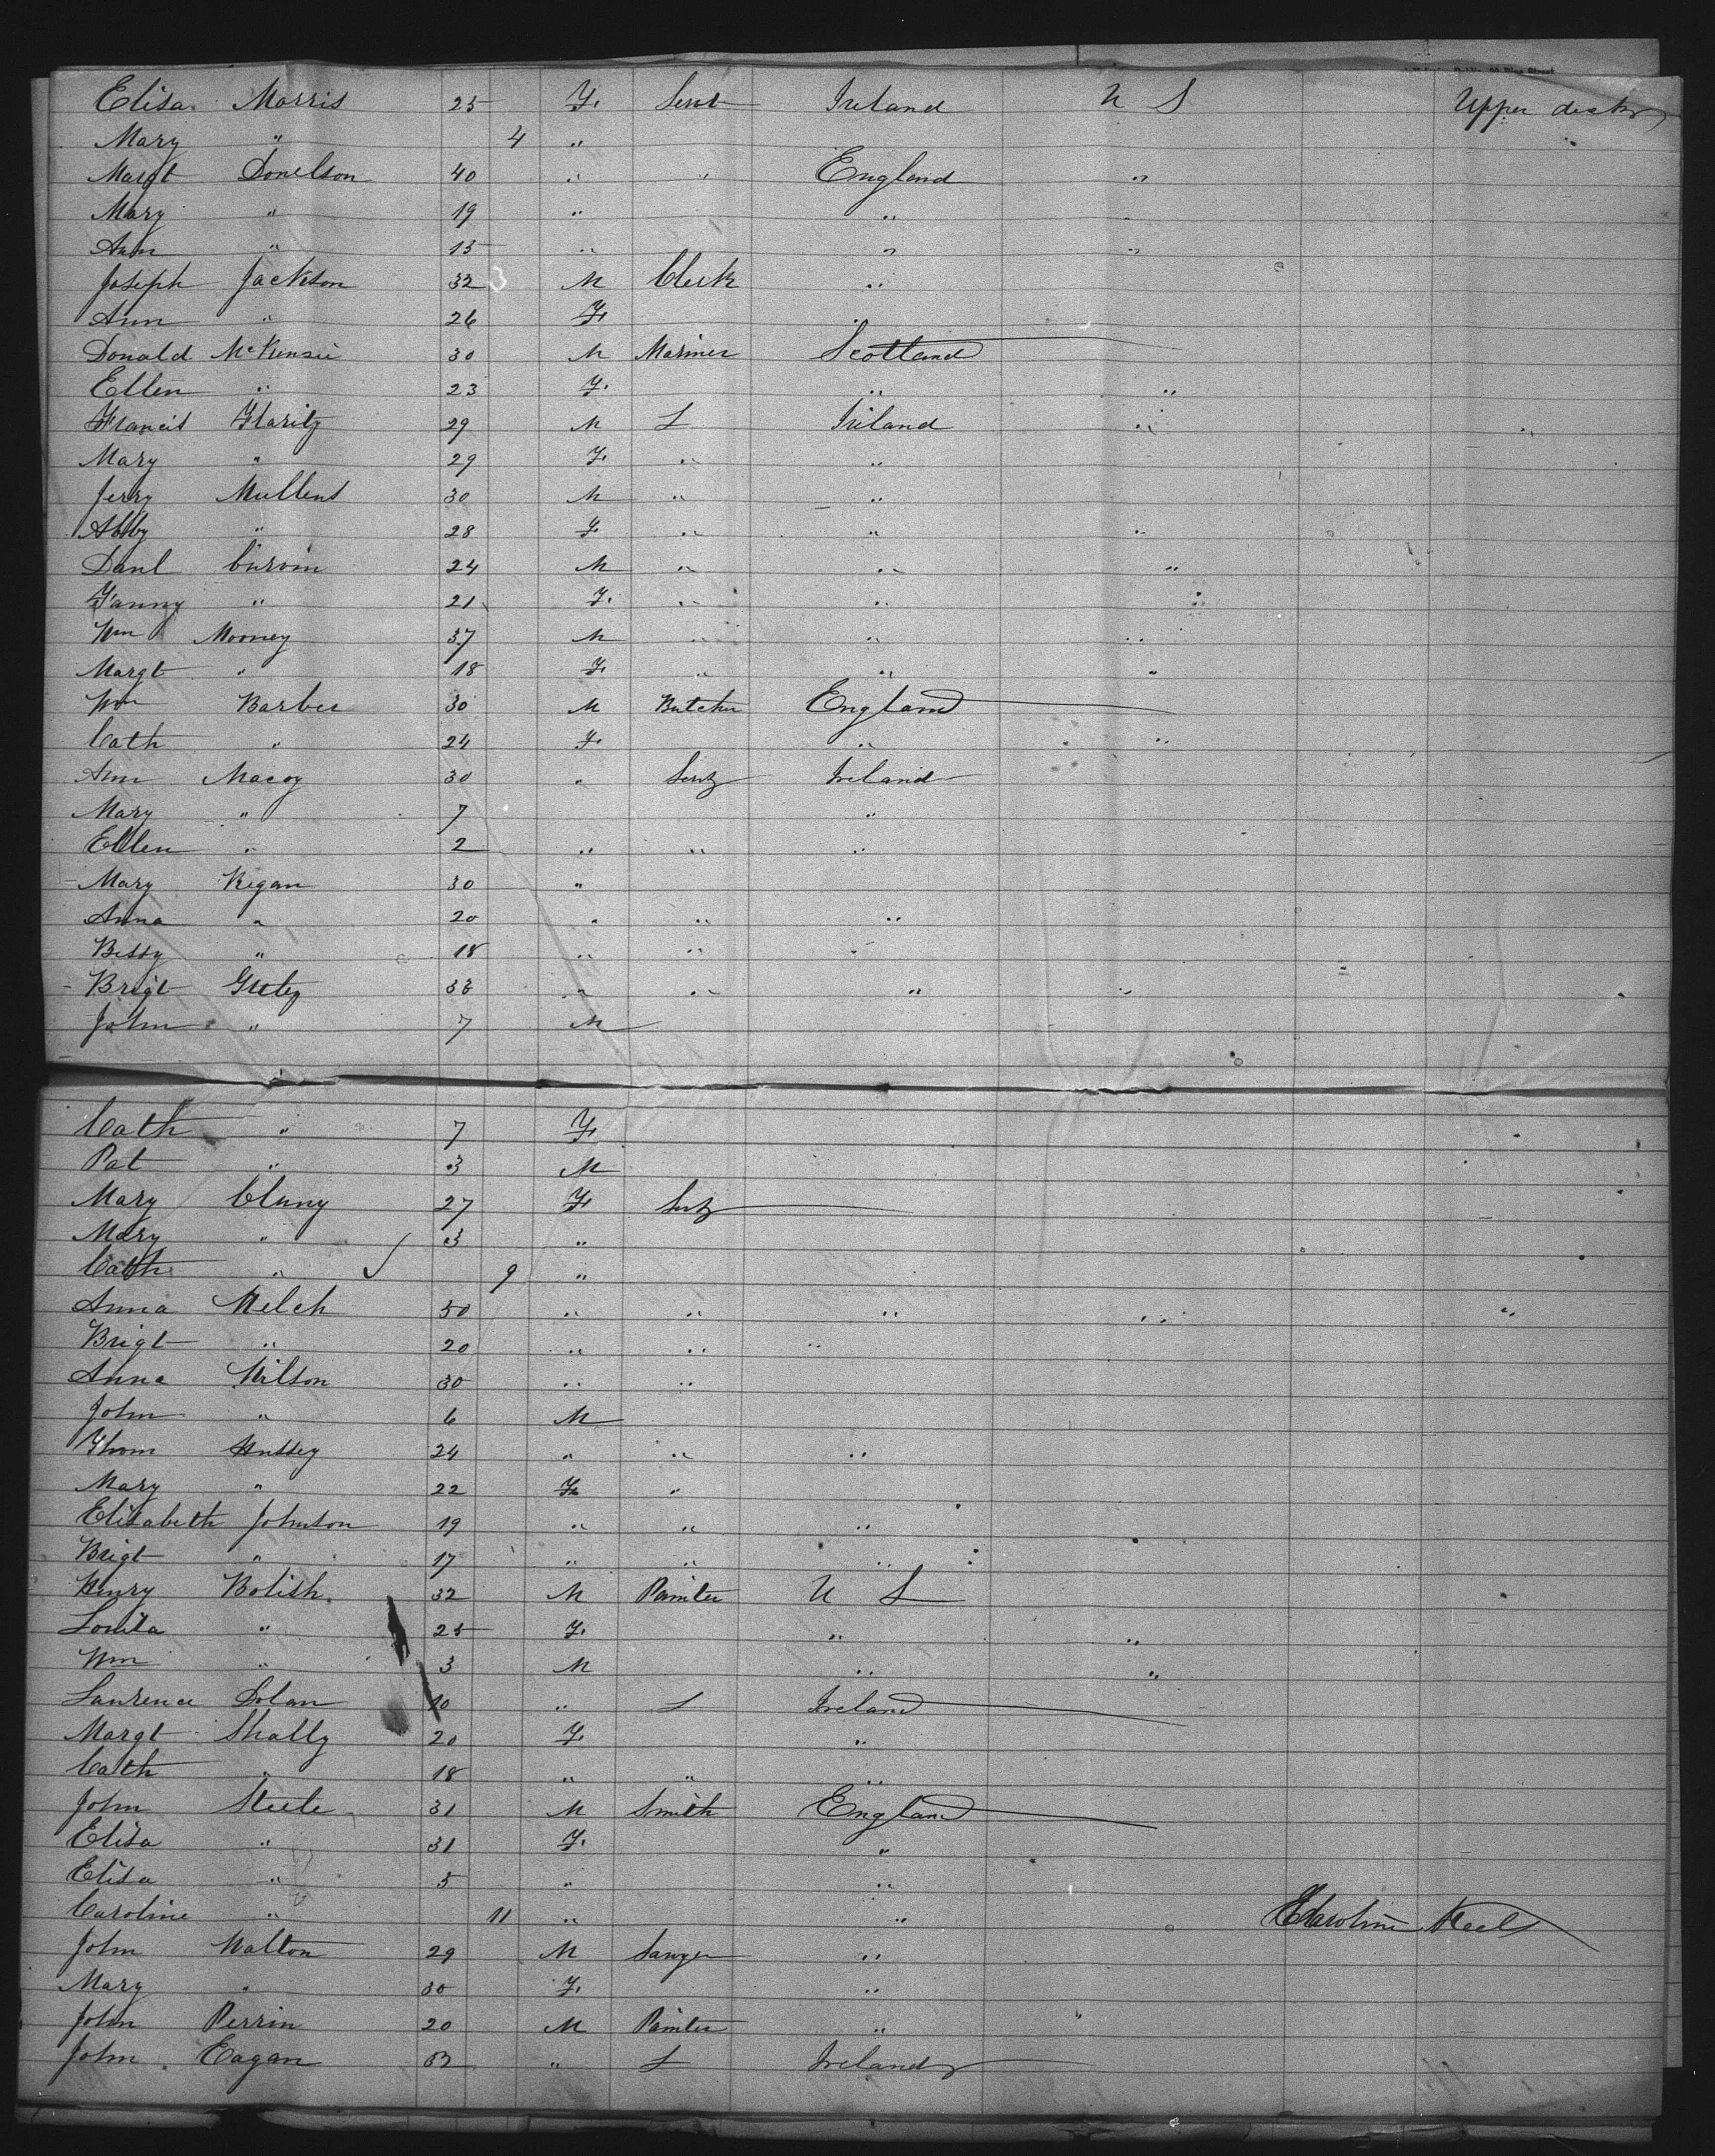 Elisa Morris 25 F. Servt Ireland U S Upper deck
Mary " 4 "
Margt Donelson 40 " " England "
Mary " 19 " "
Ann " 13 " " "
Joseph Jackson 32 M Clerk "
Ann " 26 F. "
Donald McKensie 30 M Mariner Scotland
Ellen " 23 F. " "
Francis Flarity 29 M L Ireland " "
Mary " 29 F. " "
Jerry Mullens 30 M " "
Abby " 28 F. " " "
Danl 24 M " " "
Fanny " 21 F. " " "
Wm Mooney 37 M " " "
Margt " 18 F. " " "
Wm Barber 30 M Butcher England
Cath " 24 F. " "
Ann Macoy 30 " Ireland
Mary " 7 "
Ellen " 2 " " "
Mary Kegan 30 "
Anna " 20 " " "
Bessy " 18 " " "
Brigt 33 " " " "
John " 7 M
Cath " 7 F.
Pat " 3 M
Mary Cluny 27 F.
Mary " 3 "
Cath " 9 "
Anna Welch 50 " " " " "
Brigt " 20 " " "
Anna Wilson 30 " "
John " 6 M
Thom Hussey 24 " " "
Mary " 22 F. "
Elisabeth Johnson 19 " " "
Brigt " 17 " " "
Henry Bolish 32 M Painter U S
" 25 F. " "
Wm " 3 M " "
Laurence Dolan " L Ireland
Margt Shally 20 F. "
Cath " 18 " " "
John Steele 31 M Smith England
Elisa " 31 F. "
Elisa " 5 " "
Caroline " 11 " " Caroline Steel
John Walton 29 M Sawyer "
Mary " 30 F. "
John Perrin 20 M Painter " "
John Eagan " L Ireland